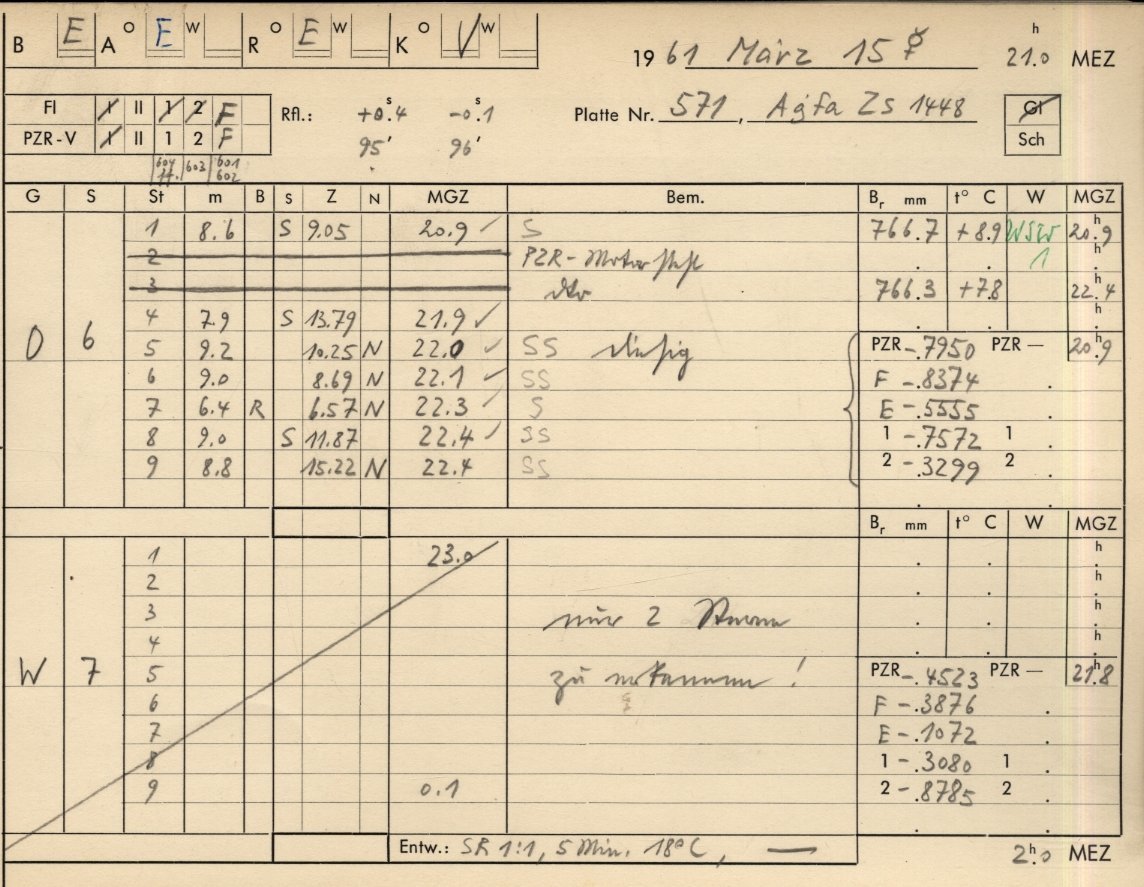 B E A O E W R O E W K O V W
19 61 März 15 ☿ 21.0 h MEZ
Fl I II 1 2 F Rfl.: +0.4 s -0.1 s Platte Nr. 571, Agfa ZS 1448 Gl
PZR-V I II 1 2 F 95' 96' Sch
604 ff. 603 601 602
G S St m B S Z N MGZ Bem. Br mm t° C W MGZ
1 8.6 S 9.05 20.9 ✓ S 766.7 +8.9 WSW 1 20.9 h
2 PZR-Motor steht
3 dto 766.3 +7.8 22.4 h
4 7.9 S 13.79 21.9 ✓
O 6 5 9.2 10.25 N 22.0 ✓ SS diesig PZR -.7950 PZR — 20.9 h
6 9.0 8.69 N 22.1 ✓ SS F -.8374
7 6.4 R 6.57 N 22.3 ✓ S E -.5555
8 9.0 S 11.87 22.4 ✓ SS 1 -.7572 1
9 8.8 15.22 N 22.4 SS 2 -.3299 2
Br mm t° C W MGZ
1 23.0 h
2 h
3 nur 2 Sterne h
4 h
W 7 5 zu erkennen! PZR -.4523 PZR — 21.8 h
6 F -.3876
7 E -.1072
8 1 -.3080 1
9 0.1 2 -.8785 2
Entw.: SR 1:1, 5 Min. 18° C, — 2.0 h MEZ